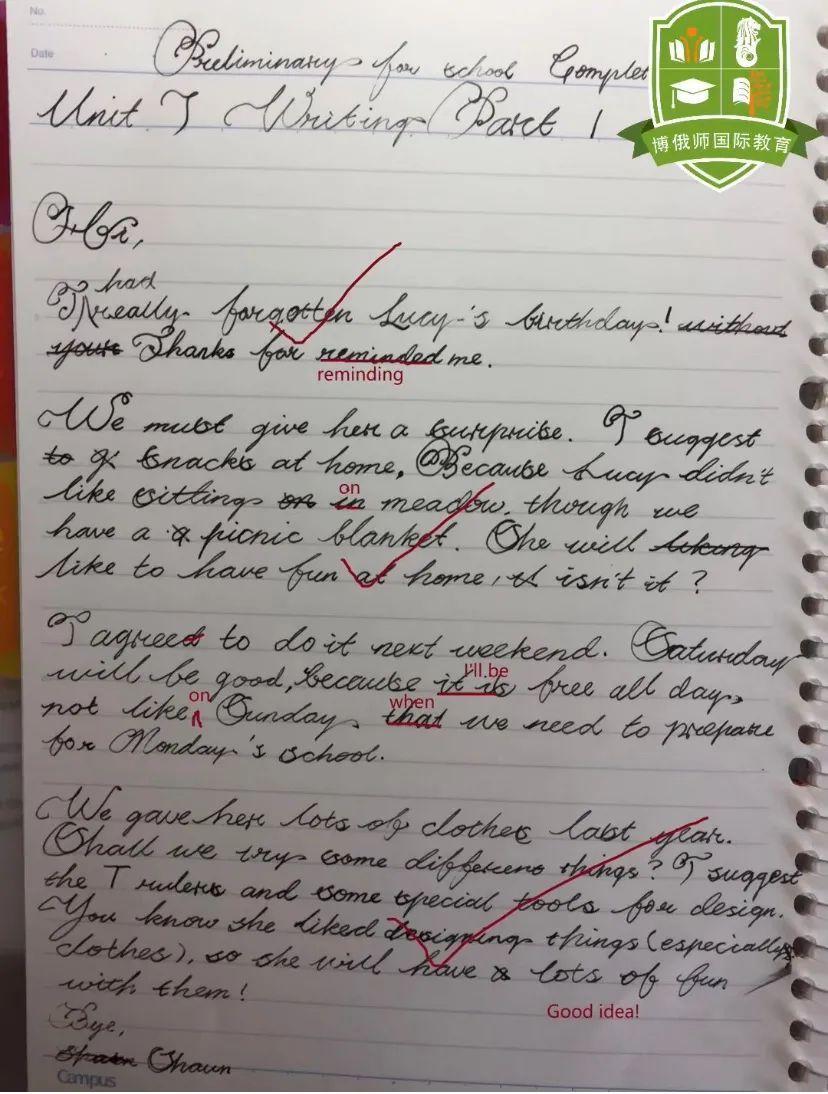 No.
Date
Preliminary for school Complet
Unit 7 Writing Part 1
博俄师国际教育
Hi,
had
I really forgotten Lucy's birthday! without
your Thanks for reminded me.
reminding
We must give her a surprise. I suggest
to snacks at home, Because Lucy didn't
on
like sitting or in meadow, though we
have a picnic blanket. She will liking
like to have fun at home, isn't it?
I agreed to do it next weekend. Saturday
I'll be
will be good, because it is free all day,
on when
not like Sunday that we need to prepare
for Monday's school.
We gave her lots of clothes last year.
Shall we try some different things? I suggest
the T rulers and some special tools for design.
You know she liked designing things (especially
clothes), so she will have lots of fun
with them!
Good idea!
Bye,
Shaun Shaun
Campus